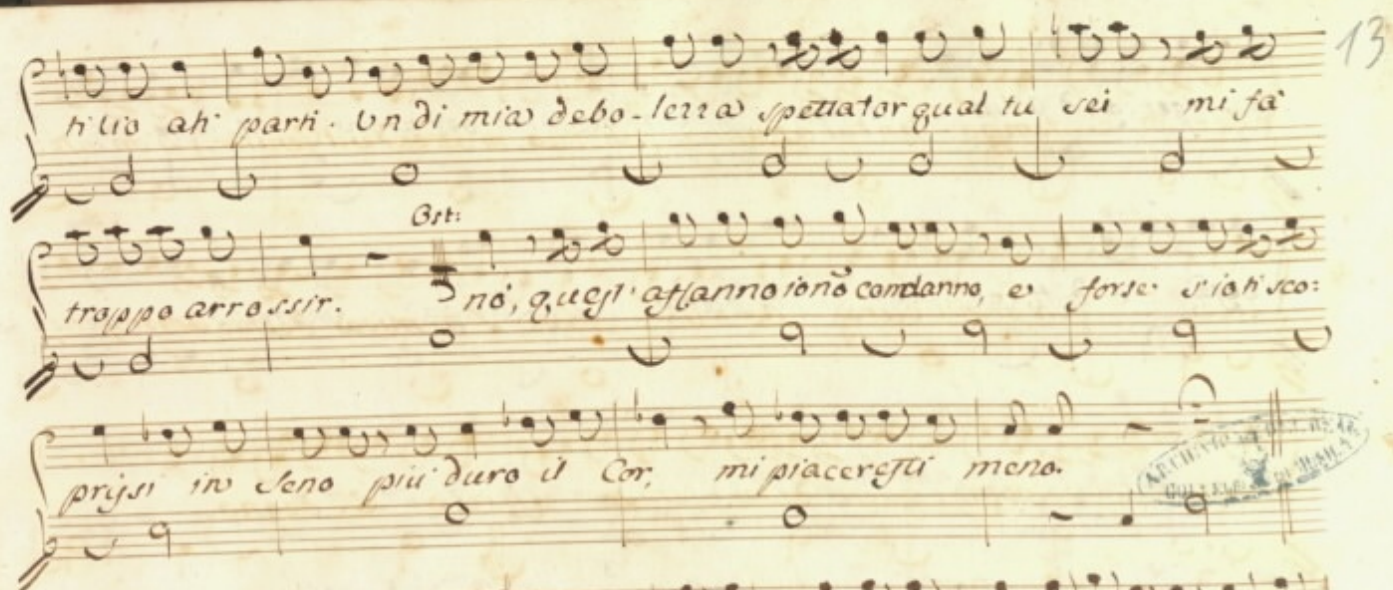 13
tilio ah parti. Un di mia debo-lezza spettator qual tu sei mi fà
Ost:
troppo arrossir. nò, quest' affanno io nõ condanno, e forse s'io ti sco:
prissi in seno più duro il Cor, mi piaceresti meno.
ARCHIVIO DEL REAL
COLLEGIO DI MUSICA